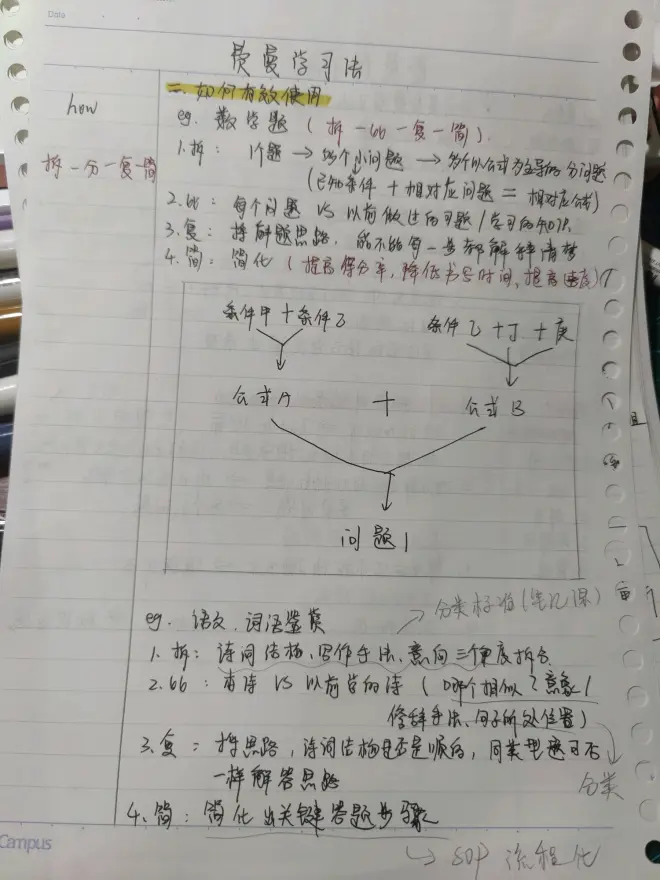 Date
费曼学习法
二、如何有效使用
how
eg. 数学题 ( 拆一66一复一简).
拆一分一复一简
1.拆: 1个题 → 多个小问题 → 多个以公式为主导的分问题
(已知条件 + 相对应问题 = 相对应公式)
2.66: 每个问题 VS 以前做过的习题/学习的知识
3.复: 捋解题思路, 能不能每一步都解释清楚
4.简: 简化 (提高得分率, 降低书写时间, 提高速度)
条件甲+条件乙
条件乙+丁+庚
公式A + 公式B
问题1
分类标准(笔记课)
eg. 语文. 词语鉴赏
1. 拆: 诗词结构、写作手法、意向三个角度拆分.
2.66: 本诗 VS 以前学的诗 (哪个相似? 意象/
修辞手法、句子所处位置)
3.复: 捋思路, 诗词结构是否是顺的, 同类型题可否
一样解答思路
分类
4.简: 简化出关键答题步骤
Campus
SOP 流程化